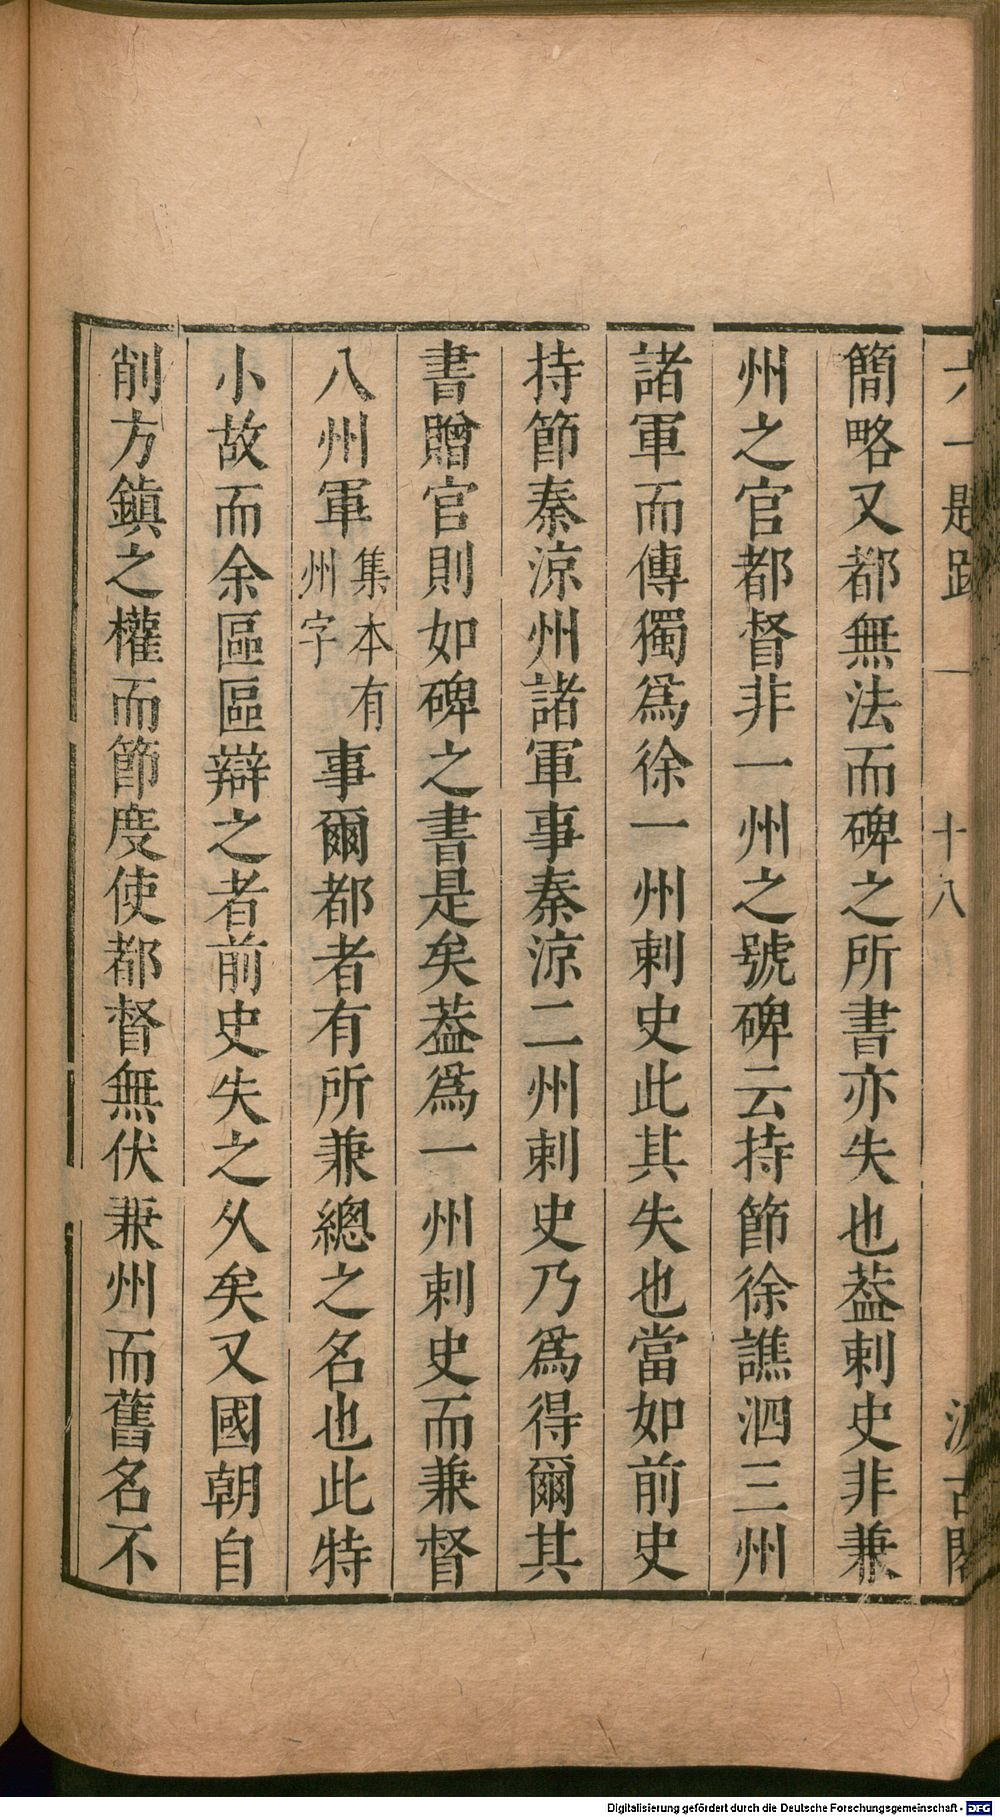 六一題跋 一 十八 汲古閣
簡略又都無法而碑之所書亦失也葢刺史非兼
州之官都督非一州之號碑云持節徐譙泗三州
諸軍而傳獨爲徐一州刺史此其失也當如前史
持節秦涼州諸軍事秦涼二州刺史乃爲得爾其
書贈官則如碑之書是矣葢爲一州刺史而兼督
八州軍集本有州字事爾都者有所兼總之名也此特
小故而余區區辯之者前史失之久矣又國朝自
削方鎮之權而節度使都督無伏兼州而舊名不
Digitalisierung gefördert durch die Deutsche Forschungsgemeinschaft - DFG